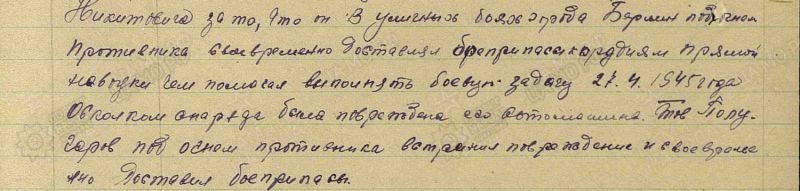 Никитовича за то, что он в уличных боях города Берлин под огнем
противника своевременно доставлял боеприпасы к орудиям прямой
наводки чем помогал выполнять боевую задачу 27.4.1945 года
Осколком снаряда была повреждена его автомашина. Тов Полу-
гаров под огнем противника устранил повреждение и своевреме
нно доставил боеприпасы.